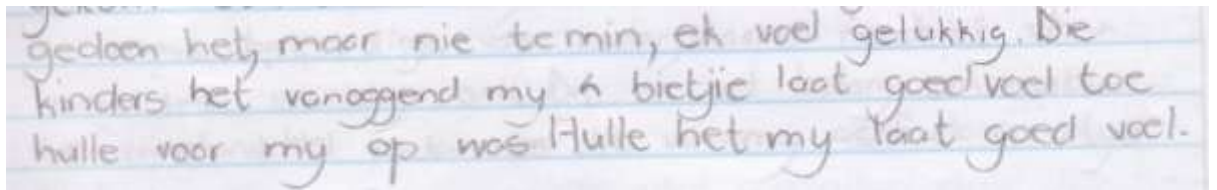 gedoen het, maar nie te min, ek voel gelukkig. Die
kinders het vanoggend my 'n bietjie laat goed voel toe
hulle voor my op was Hulle het my laat goed voel.